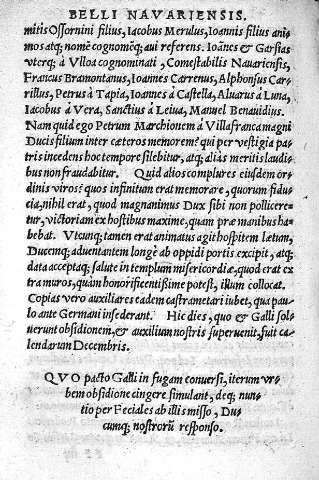 BELLI NAVARIENSIS.
mitis Ossornini filius, Iacobus Merulus, Ioannis filius ani=
mos atq; nomē cognomēq; aui referens. Ioānes & Garsias
vterq; à Vlloa cognominati, Comestabilis Nauariensis,
Francus Bramontanus, Ioannes Carrenus, Alphonsus Car=
rillus, Petrus à Tapia, Ioannes à Castella, Aluarus à Luna,
Iacobus à Vera, Sanctius à Leiua, Manuel Benauidius.
Nam quid ego Petrum Marchionem à Villafranca magni
Ducis filium inter cæteros memorem? qui per vestigia pa=
tris incedens hoc tempore silebitur, atq; aliàs meritis laudi=
bus non fraudabitur. Quid alios complures eiusdem or=
dinis viros? quos infinitum erat memorare, quorum fidu=
cia, nihil erat, quod magnanimus Dux sibi non pollicere=
tur, victoriam ex hostibus maxime, quam præ manibus ha=
bebat. Vtcunq; tamen erat animatus agit hospitem lætum,
Ducemq; aduentantem longè ab oppidi portis excipit, atq;
data acceptaq; salute in templum misericordiæ, quod erat ex
tra muros, quàm honorificentissime potest, illum collocat.
Copias vero auxiliares eadem castrametari iubet, qua pau=
lo ante Germani insederant. Hic dies, quo & Galli sol=
uerunt obsidionem, & auxilium nostris superuenit, fuit ca=
lendarum Decembris.
QVO pacto Galli in fugam conuersi, iterum vr=
bem obsidione cingere simulant, deq; nun=
tio per Feciales ab illis misso, Du=
cumq; nostrorū responso.